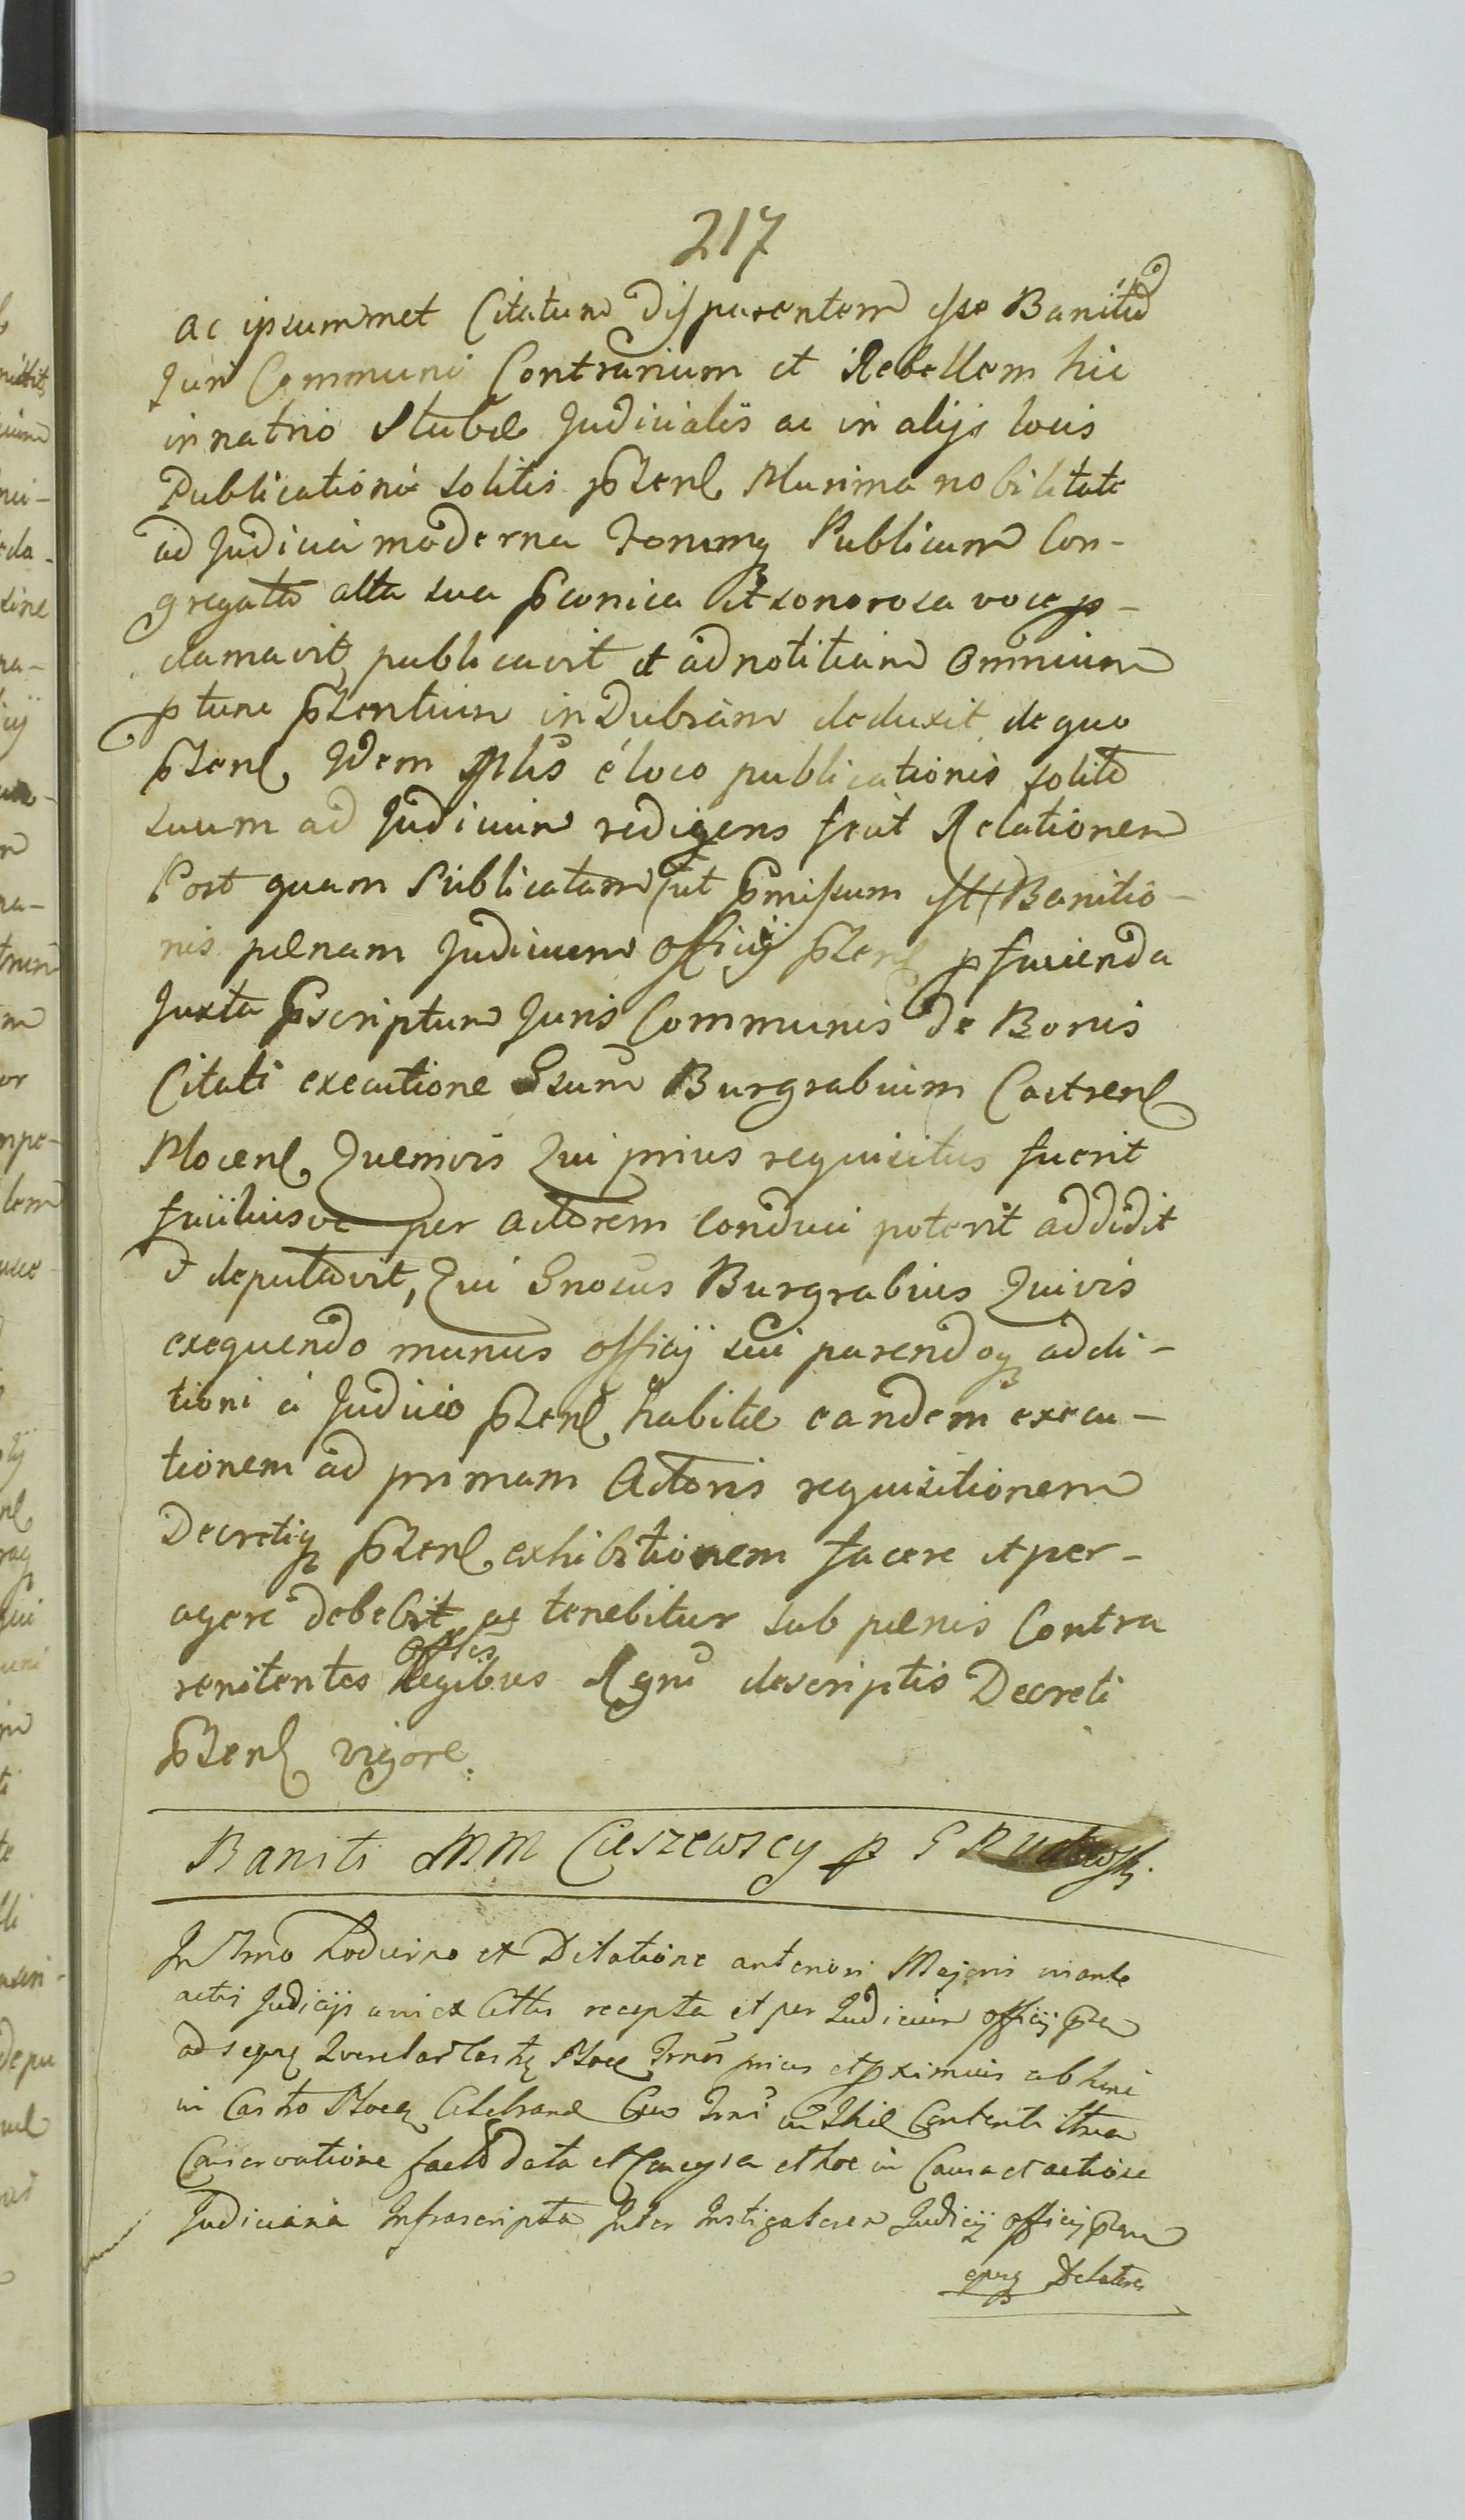 217
ac ipsummet Citatum disparentem esse Banitū
Juri Communi Contrarium et Rebellem hic
in natrio Stubæ Judicialis ac in alijs locis
Publicationi solitis pszenł Plurima nobilitate
ad Judicia moderna Termq Publicum Con-
gregata alta sua pconica et sonorosa voce p-
clamavit, publicavit et ad notitiam omnium
ptunc pszentium in Dubiam deduxit, de quo
pszenł Idem Mlis é loco publicationis solito
suum ad Judicium redigens fecit Relationem
Post quam Publicatam (ut pmissum est) Banitio-
nis pœnam Judicium officij pszenł p facienda
Juxta pscriptum Juris Communis de Bonis
Citati executione Gsum Burgrabium Castrenł
Plocenł, Quemvis Qui prius requisitus fuerit
faciliusve per actorem conduci poterit addidit
et deputavit, Qui Gnosus Burgrabius Quivis
exequendo munus officij sui parendoq addi-
tioni á Judicio pszenł habitæ eandem execu-
tionem ad primam Actoris requisitionem
Decretiq pszenł exhibitionem facere et per-
agere debebit ac tenebitur sub pœnis Contra
renitentes
legibus Rgni descriptis Decreti
pszenł vigore.
Baniti MM Cieszewscy p G Rudowski
In Trno et Dilatione anteriori Majori in ante
actis Judicijs recepta et per Judicium officij
prius et pximius ab hinc
in Castro
Conservatione facto data et Concessa et hoc in Causa et actione
Judiciaria Infrascripta Inter Instigatorem Judicij officij
ejusq Delatores